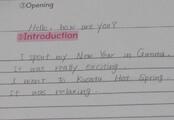 ①Opening
Hello, how are you?
②Introduction
I spent my New Year in Gunma.
It was really exciting.
I went to Kusatu Hot Spring.
It was relaxing.